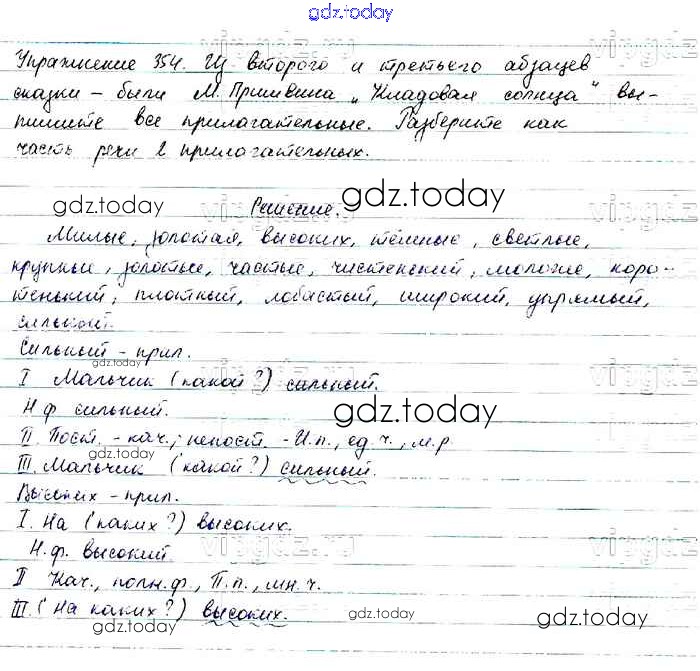 gdz.today
Упражнение 354. Из второго и третьего абзацев
сказки – были М. Пришвина „Кладовая солнца“ вы-
пишите все прилагательные. Разберите как
часть речи 2 прилагательных.
gdz.today
Решение.
gdz.today
Милые, золотая, высоких, тёмные, светлые,
крупные, золотые, частые, чистенький, молодые, коро-
тенький, плотный, лобастый, широкий, упрямый,
сильный.
Сильный – прил.
gdz.today
I Мальчик (какой?) сильный.
Н.ф. сильный.
gdz.today
II. Пост. – кач.; непост. – И.п., ед.ч., м.р.
gdz.today
III. Мальчик (какой?) сильный.
Высоких – прил.
I. На (каких?) высоких.
Н.ф. высокий.
vipgdz.ru
II Кач., полн.ф., П.п., мн.ч.
III. (На каких?) высоких.
gdz.today
gdz.today
gdz.today